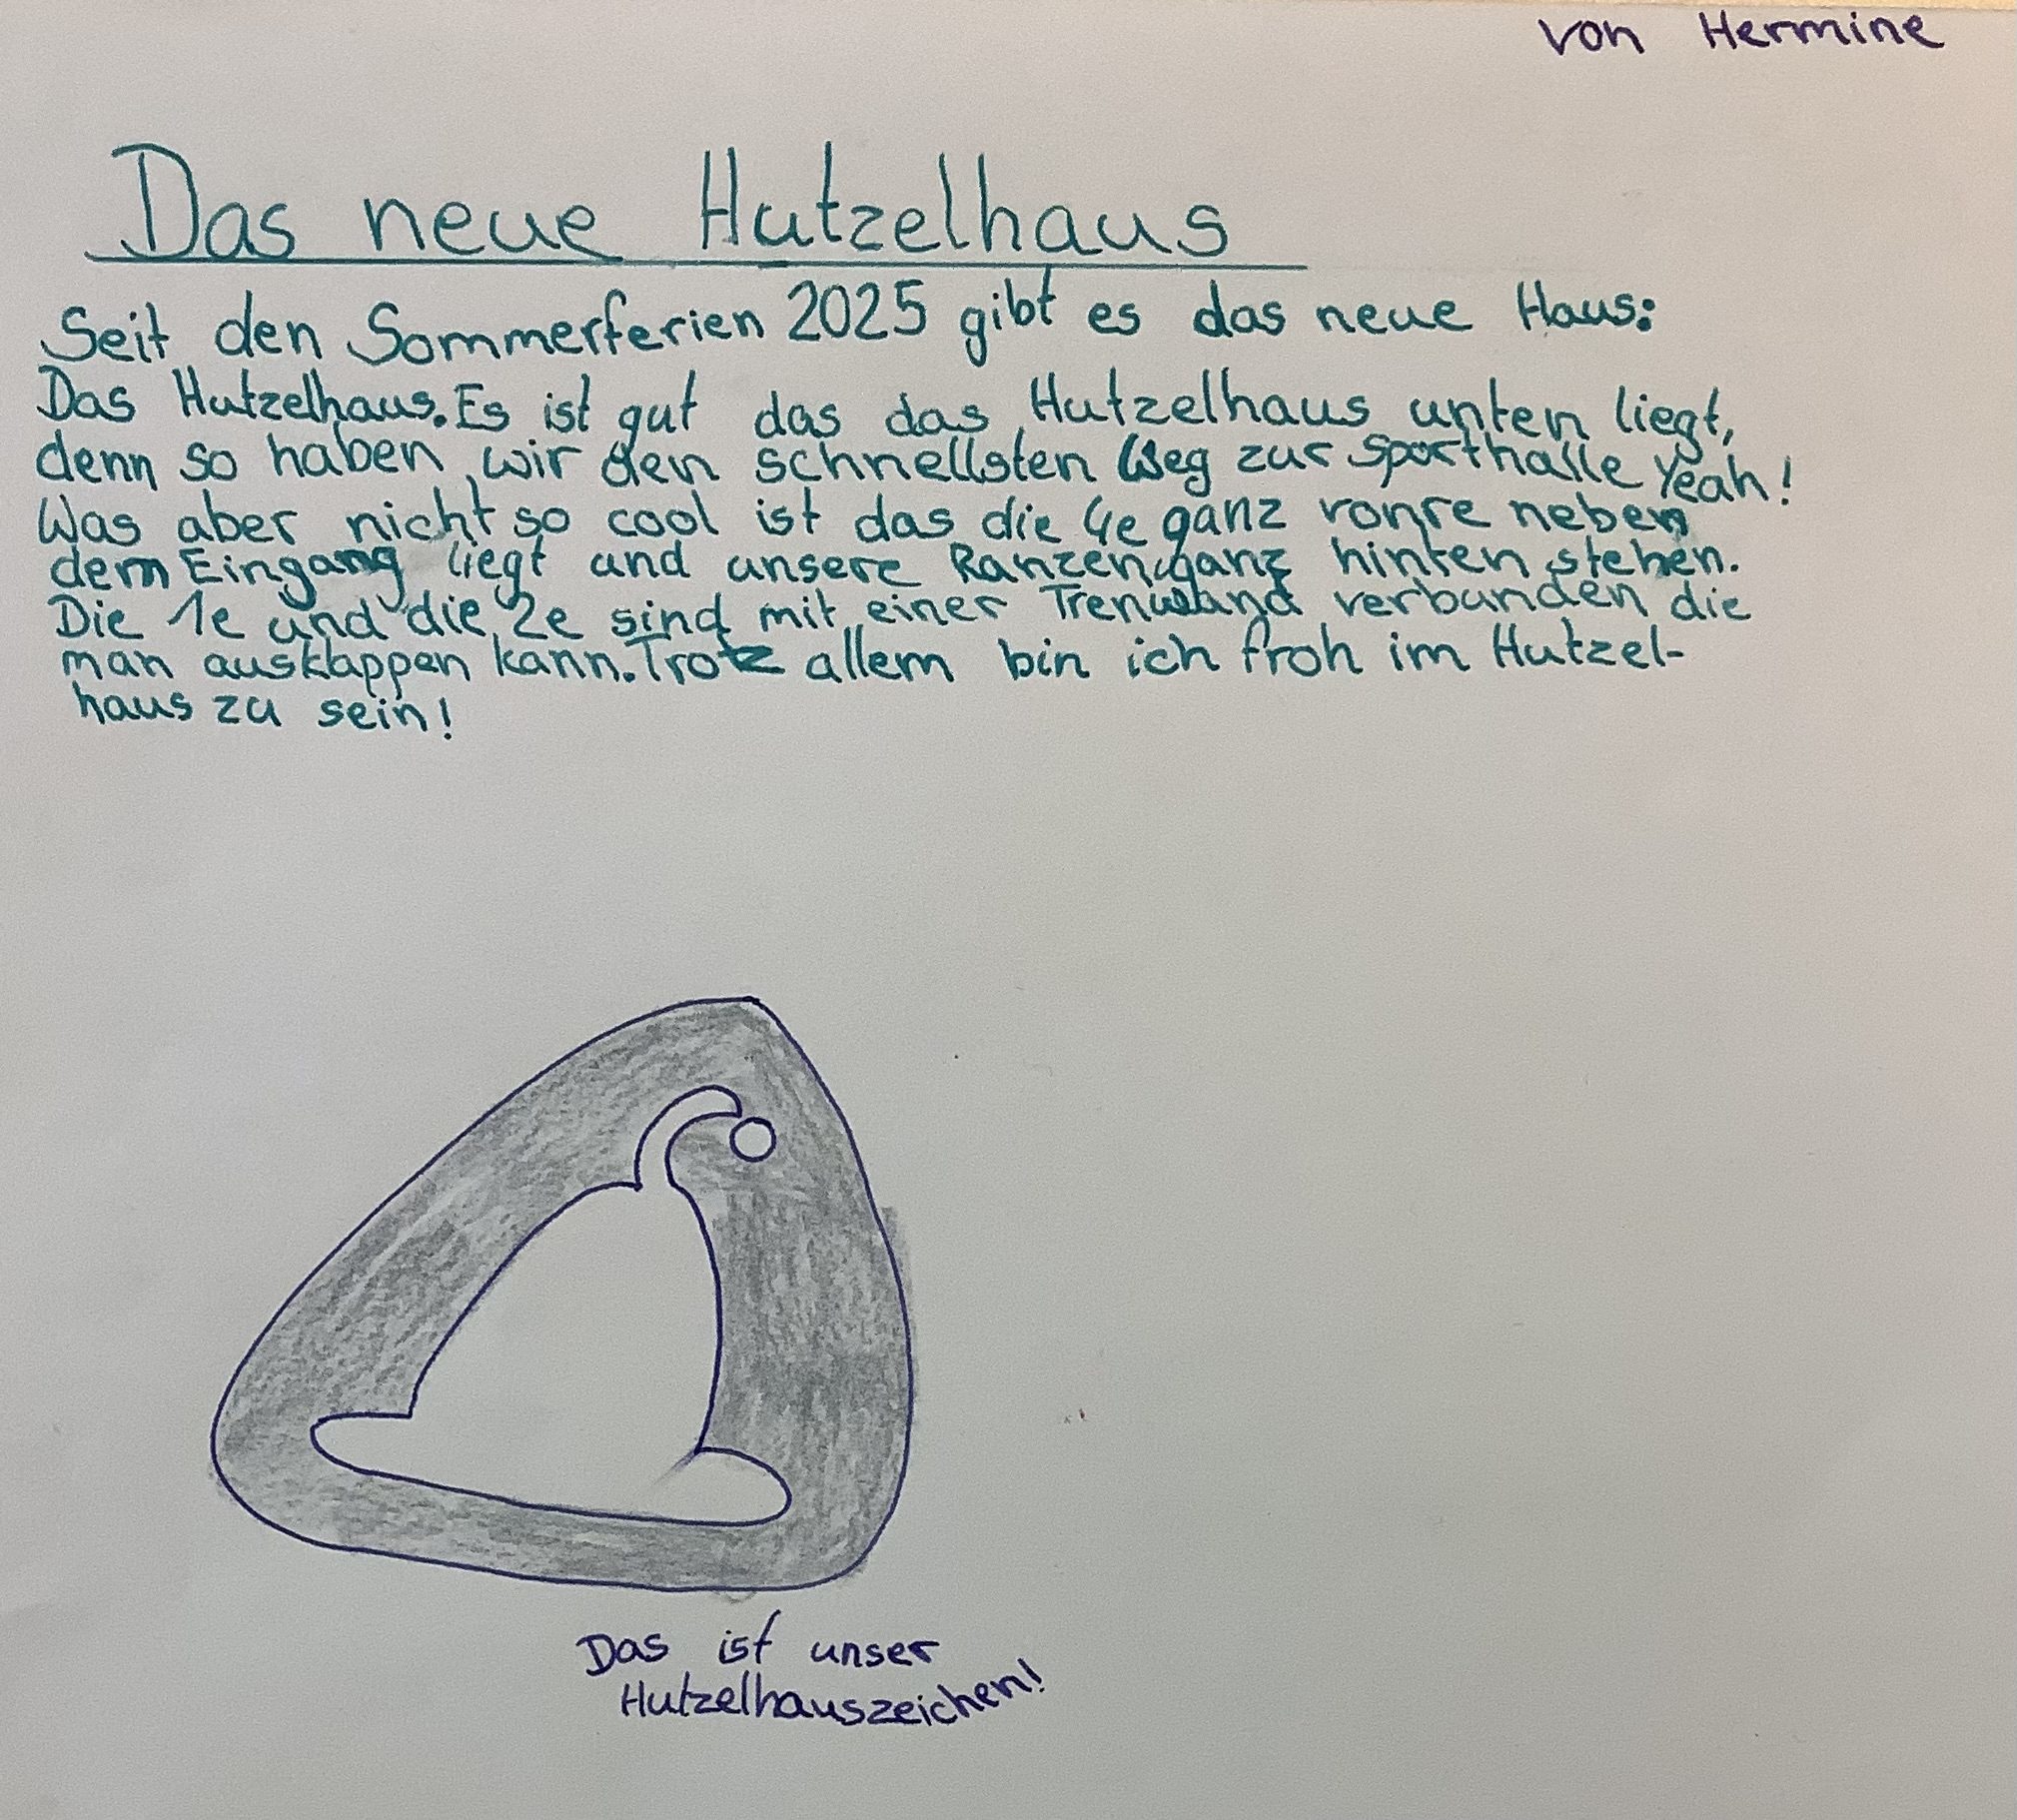 von Hermine
Das neue Hutzelhaus
Seit den Sommerferien 2025 gibt es das neue Haus:
Das Hutzelhaus. Es ist gut das das Hutzelhaus unten liegt,
denn so haben wir den schnellsten Weg zur Sporthalle Yeah!
Was aber nicht so cool ist das die 4e ganz vonre neben
dem Eingang liegt und unsere Ranzen ganz hinten stehen.
Die 1e und die 2e sind mit einer Trenwand verbunden die
man ausklappen kann. Trotz allem bin ich froh im Hutzel-
haus zu sein!
Das ist unser
Hutzelhauszeichen!